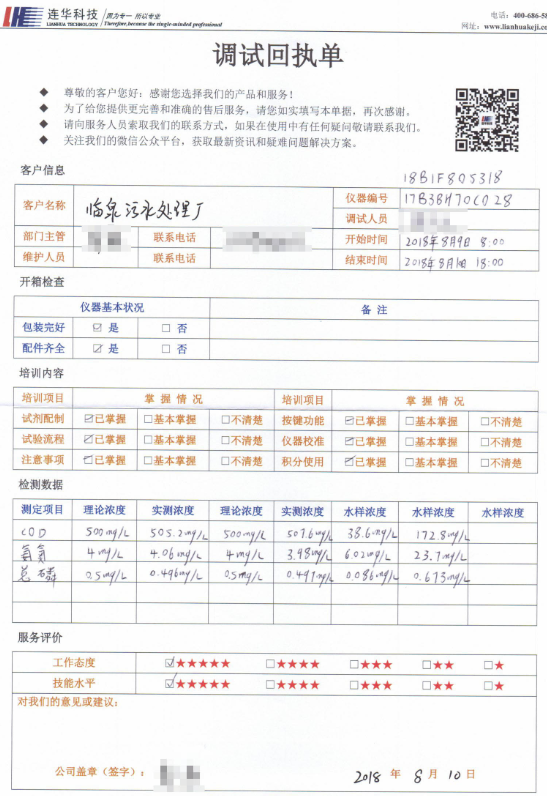 连华科技 因为专一 所以专业
LIANHUA TECHNOLOGY Therefore,because the single-minded professional
电话: 400-686-58
网址: www.lianhuakeji.co
调试回执单
◆ 尊敬的客户您好: 感谢您选择我们的产品和服务!
◆ 为了给您提供更完善和准确的售后服务, 请您如实填写本单据, 再次感谢。
◆ 请向服务人员索取我们的联系方式, 如果在使用中有任何疑问敬请联系我们。
◆ 关注我们的微信公众平台, 获取最新资讯和疑难问题解决方案。
客户信息
18B1F805318
客户名称 临泉污水处理厂 仪器编号 17B3BH70C028
调试人员
部门主管 联系电话 开始时间 2018年8月9日 8:00
维护人员 联系电话 结束时间 2018年8月10日 18:00
开箱检查
仪器基本状况 备 注
包装完好 ☑ 是 ☐ 否
配件齐全 ☑ 是 ☐ 否
培训内容
培训项目 掌 握 情 况 培训项目 掌 握 情 况
试剂配制 ☑已掌握 ☐基本掌握 ☐不清楚 按键功能 ☑已掌握 ☐基本掌握 ☐不清楚
试验流程 ☑已掌握 ☐基本掌握 ☐不清楚 仪器校准 ☑已掌握 ☐基本掌握 ☐不清楚
注意事项 ☑已掌握 ☐基本掌握 ☐不清楚 积分使用 ☑已掌握 ☐基本掌握 ☐不清楚
检测数据
测定项目 理论浓度 实测浓度 理论浓度 实测浓度 水样浓度 水样浓度 水样浓度
COD 500mg/L 505.2mg/L 500mg/L 507.6mg/L 38.6mg/L 172.8mg/L
氨氮 4mg/L 4.06mg/L 4mg/L 3.98mg/L 6.02mg/L 23.7mg/L
总磷 0.5mg/L 0.496mg/L 0.5mg/L 0.497mg/L 0.086mg/L 0.673mg/L
服务评价
工作态度 ☑★★★★★ ☐★★★★ ☐★★★ ☐★★ ☐★
技能水平 ☑★★★★★ ☐★★★★ ☐★★★ ☐★★ ☐★
对我们的意见或建议:
公司盖章（签字）: 2018 年 8 月 10 日